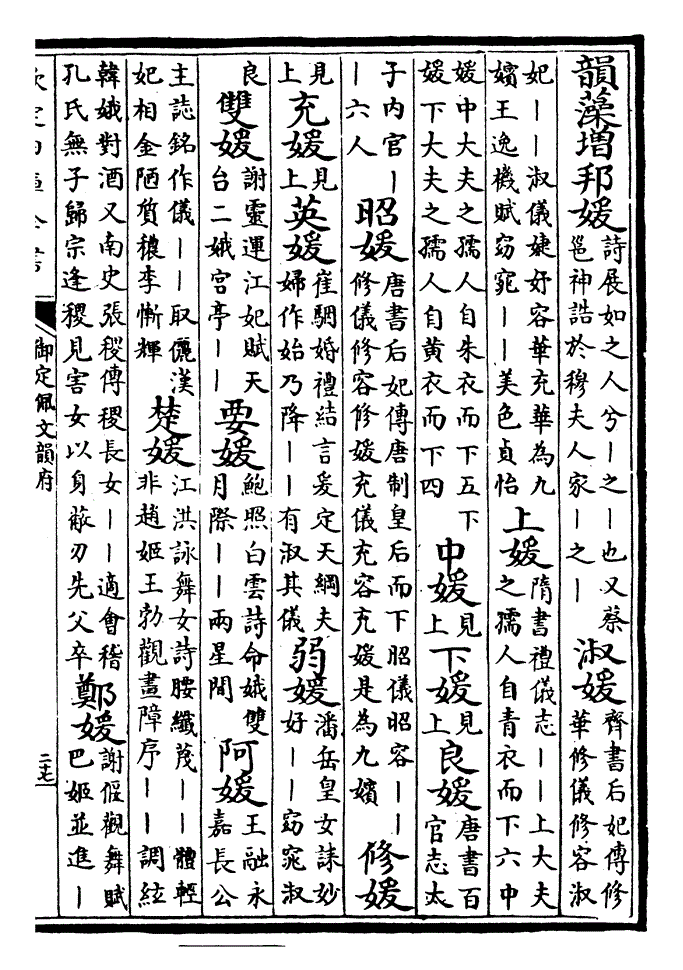 韻藻增邦媛詩展如之人兮丨之丨也又蔡邕神誥於穆夫人家丨之丨淑媛齊書后妃傳修華修儀修容淑
妃丨丨淑儀婕妤容華充華為九嬪王逸機賦窈窕丨丨美色貞怡上媛隋書禮儀志丨丨上大夫之孺人自青衣而下六中
媛中大夫之孺人自朱衣而下五下媛下大夫之孺人自黄衣而下四中媛見上下媛見上良媛唐書百官志太
子内官丨丨六人昭媛唐書后妃傳唐制皇后而下昭儀昭容丨丨修儀修容修媛充儀充容充媛是為九嬪修媛
見上充媛見上英媛崔駰婚禮結言爰定天綱夫婦作始乃降丨丨有淑其儀弱媛潘岳皇女誄妙好丨丨窈窕淑
良雙媛謝靈運江妃賦天台二娥宫亭丨丨要媛鮑照白雲詩命娥雙月際丨丨兩星間阿媛王融永嘉長公
主誌銘作儀丨丨取儷漢妃相金陋質穠李慚輝楚媛江洪詠舞女詩腰纖蔑丨丨體輕非趙姬王勃觀畫障序丨丨調絃
韓娥對酒又南史張稷傳稷長女丨丨適會稽孔氏無子歸宗逢稷見害女以身蔽刃先父卒鄭媛謝偃觀舞賦巴姬並進丨
欽定四庫全書
御定佩文韻府